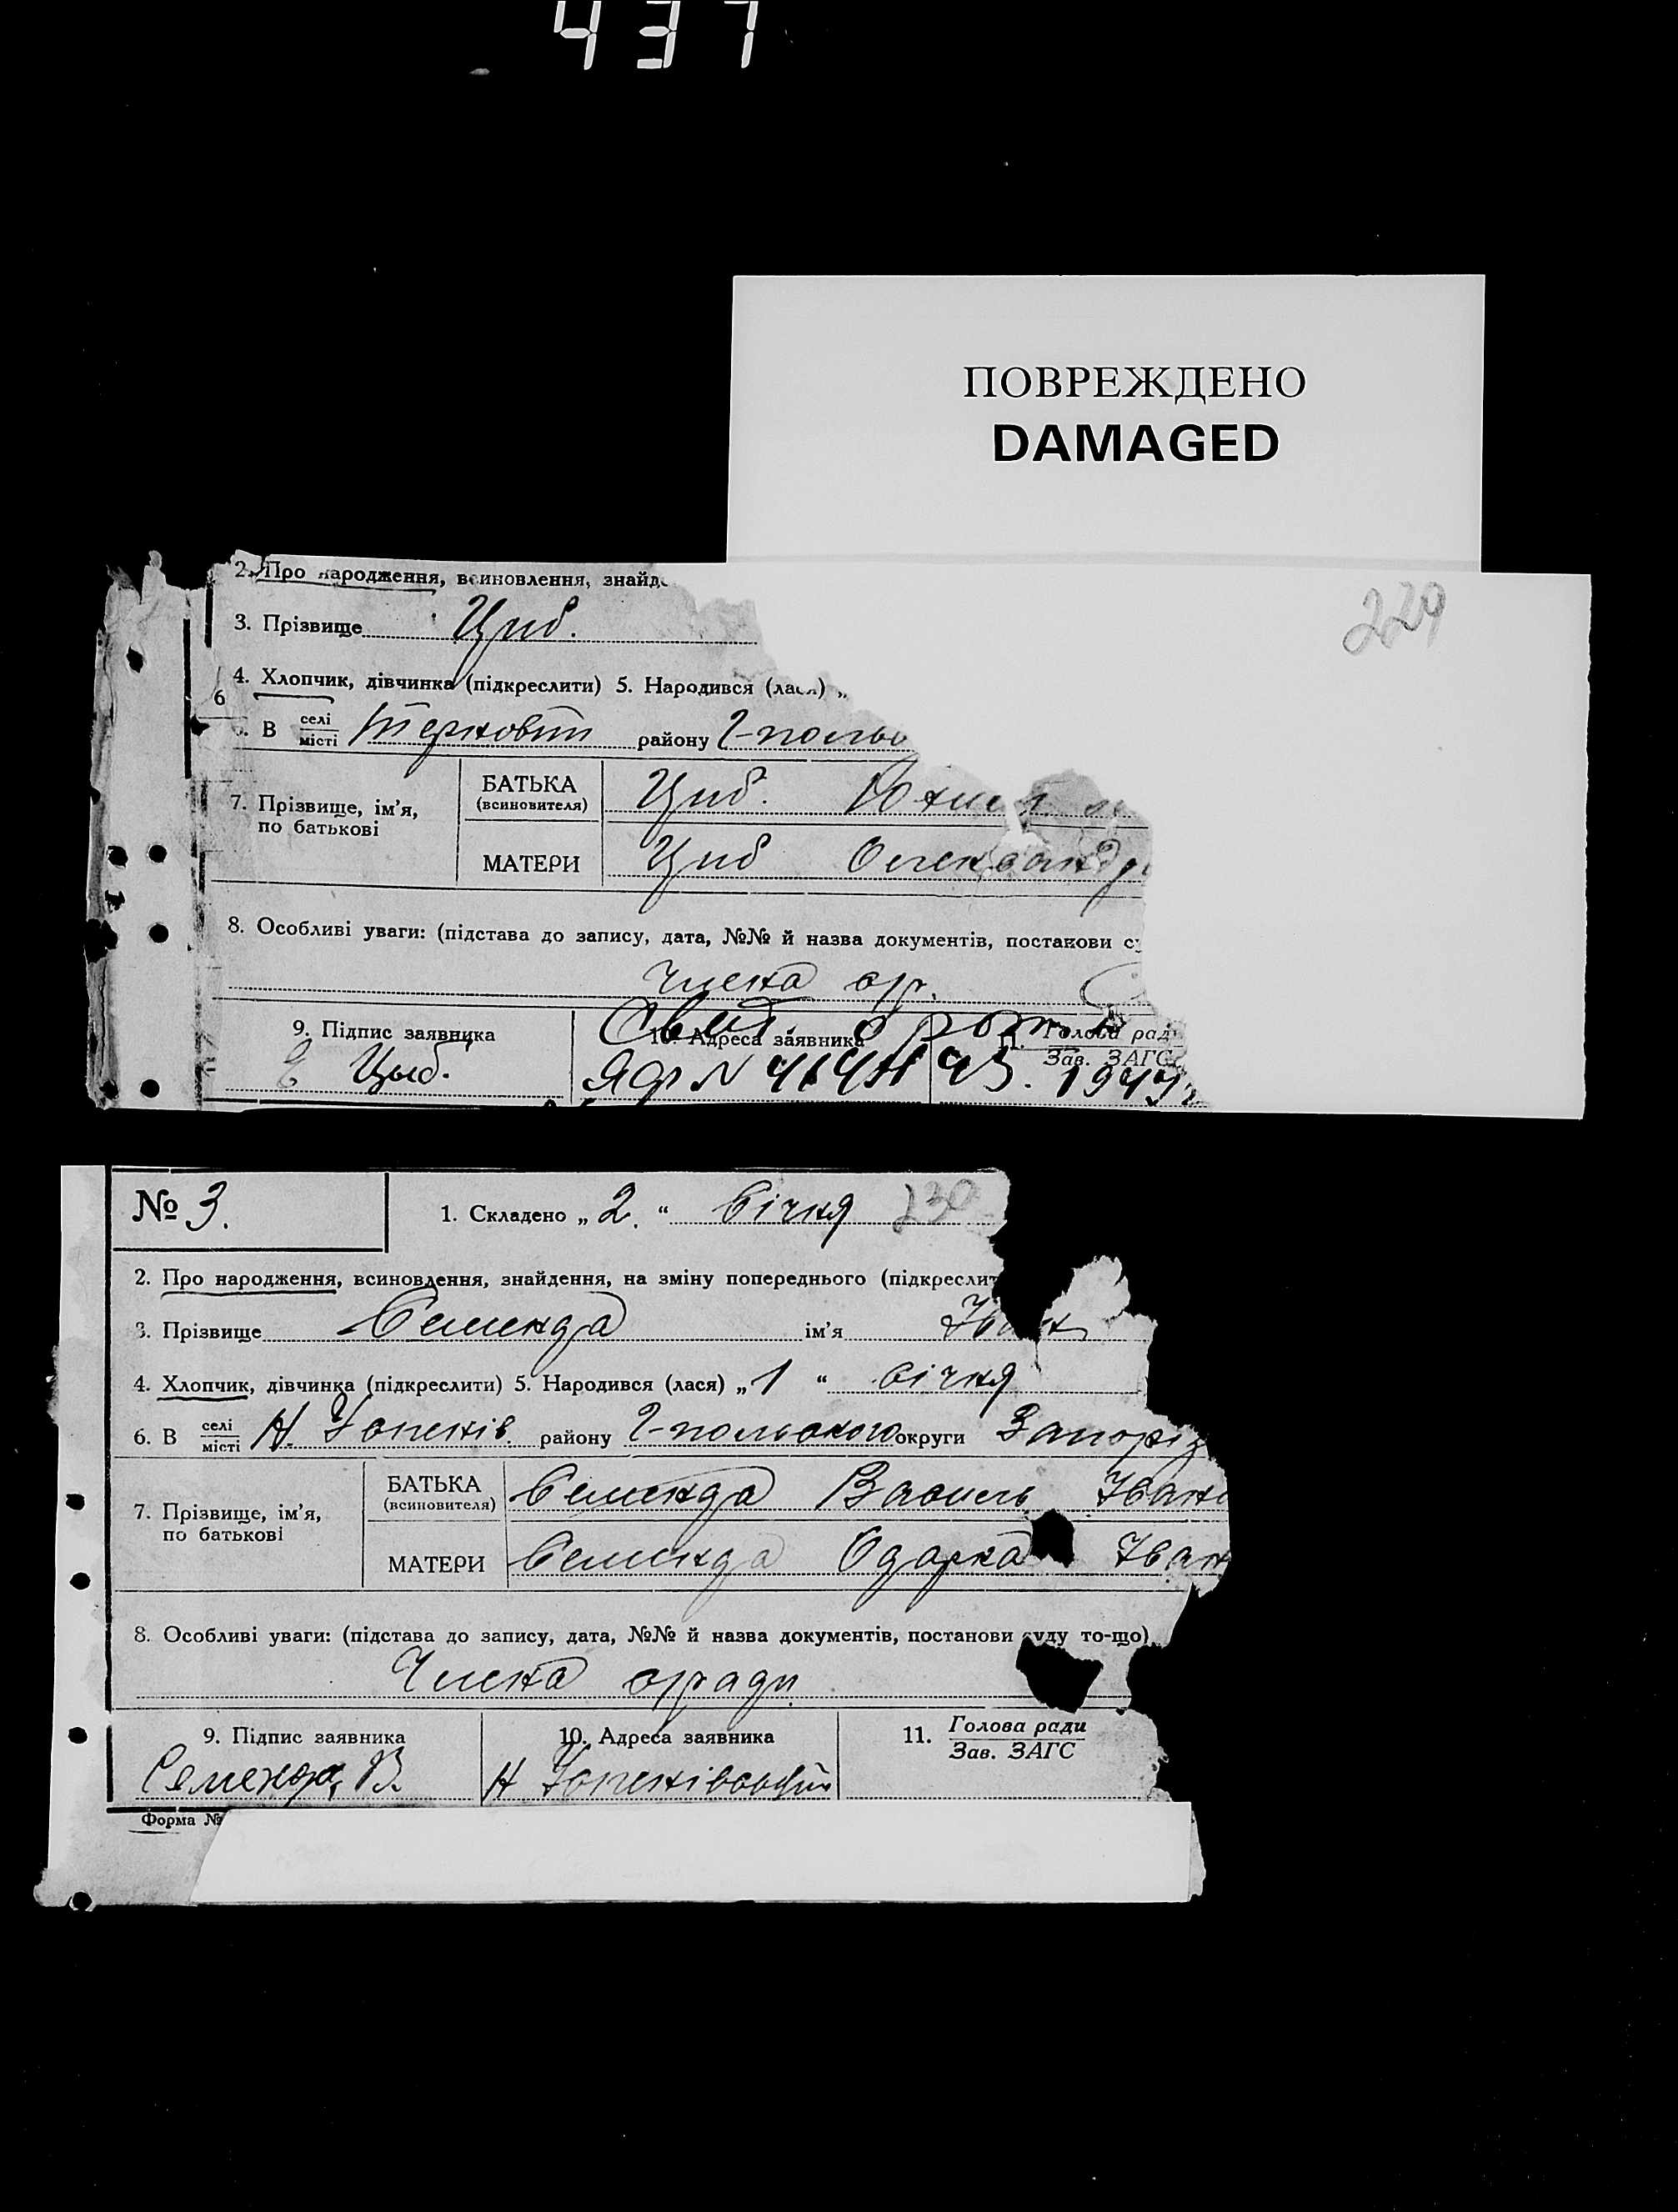 437
ПОВРЕЖДЕНО
DAMAGED
229
2. Про народження, всиновлення, знайд
3. Прізвище Циб.
4. Хлопчик, дівчинка (підкреслити) 5. Народився (лася) „
6
В селі
місті району Г-польс
7. Прізвище, ім'я, по батькові
БАТЬКА (всиновителя) Циб.
МАТЕРИ Циб Олександр
8. Особливі уваги: (підстава до запису, дата, №№ й назва документів, постанови с
Члена ср.
Свид. о рожд
9. Підпис заявника
10. Адреса заявника
11. Голова рад
Зав. ЗАГС
Цыб.
ЯФ №
№ 3.
1. Складено „ 2. “ Січня 230
2. Про народження, всиновлення, знайдення, на зміну попереднього (підкреслит
3. Прізвище Семенда ім'я Іван
4. Хлопчик, дівчинка (підкреслити) 5. Народився (лася) „ 1 “ січня
6. В селі
місті Н. Успенів. району Г-польского округи Запоріз
7. Прізвище, ім'я, по батькові
БАТЬКА (всиновителя) Семенда Василь Івано
МАТЕРИ Семенда Одарка Іван
8. Особливі уваги: (підстава до запису, дата, №№ й назва документів, постанови суду то-що)
Члена сради
9. Підпис заявника
10. Адреса заявника
11. Голова ради
Зав. ЗАГС
Семенда В
Форма №